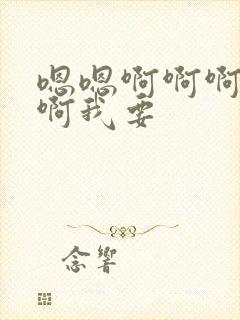 嗯嗯啊啊啊
啊我要
念響